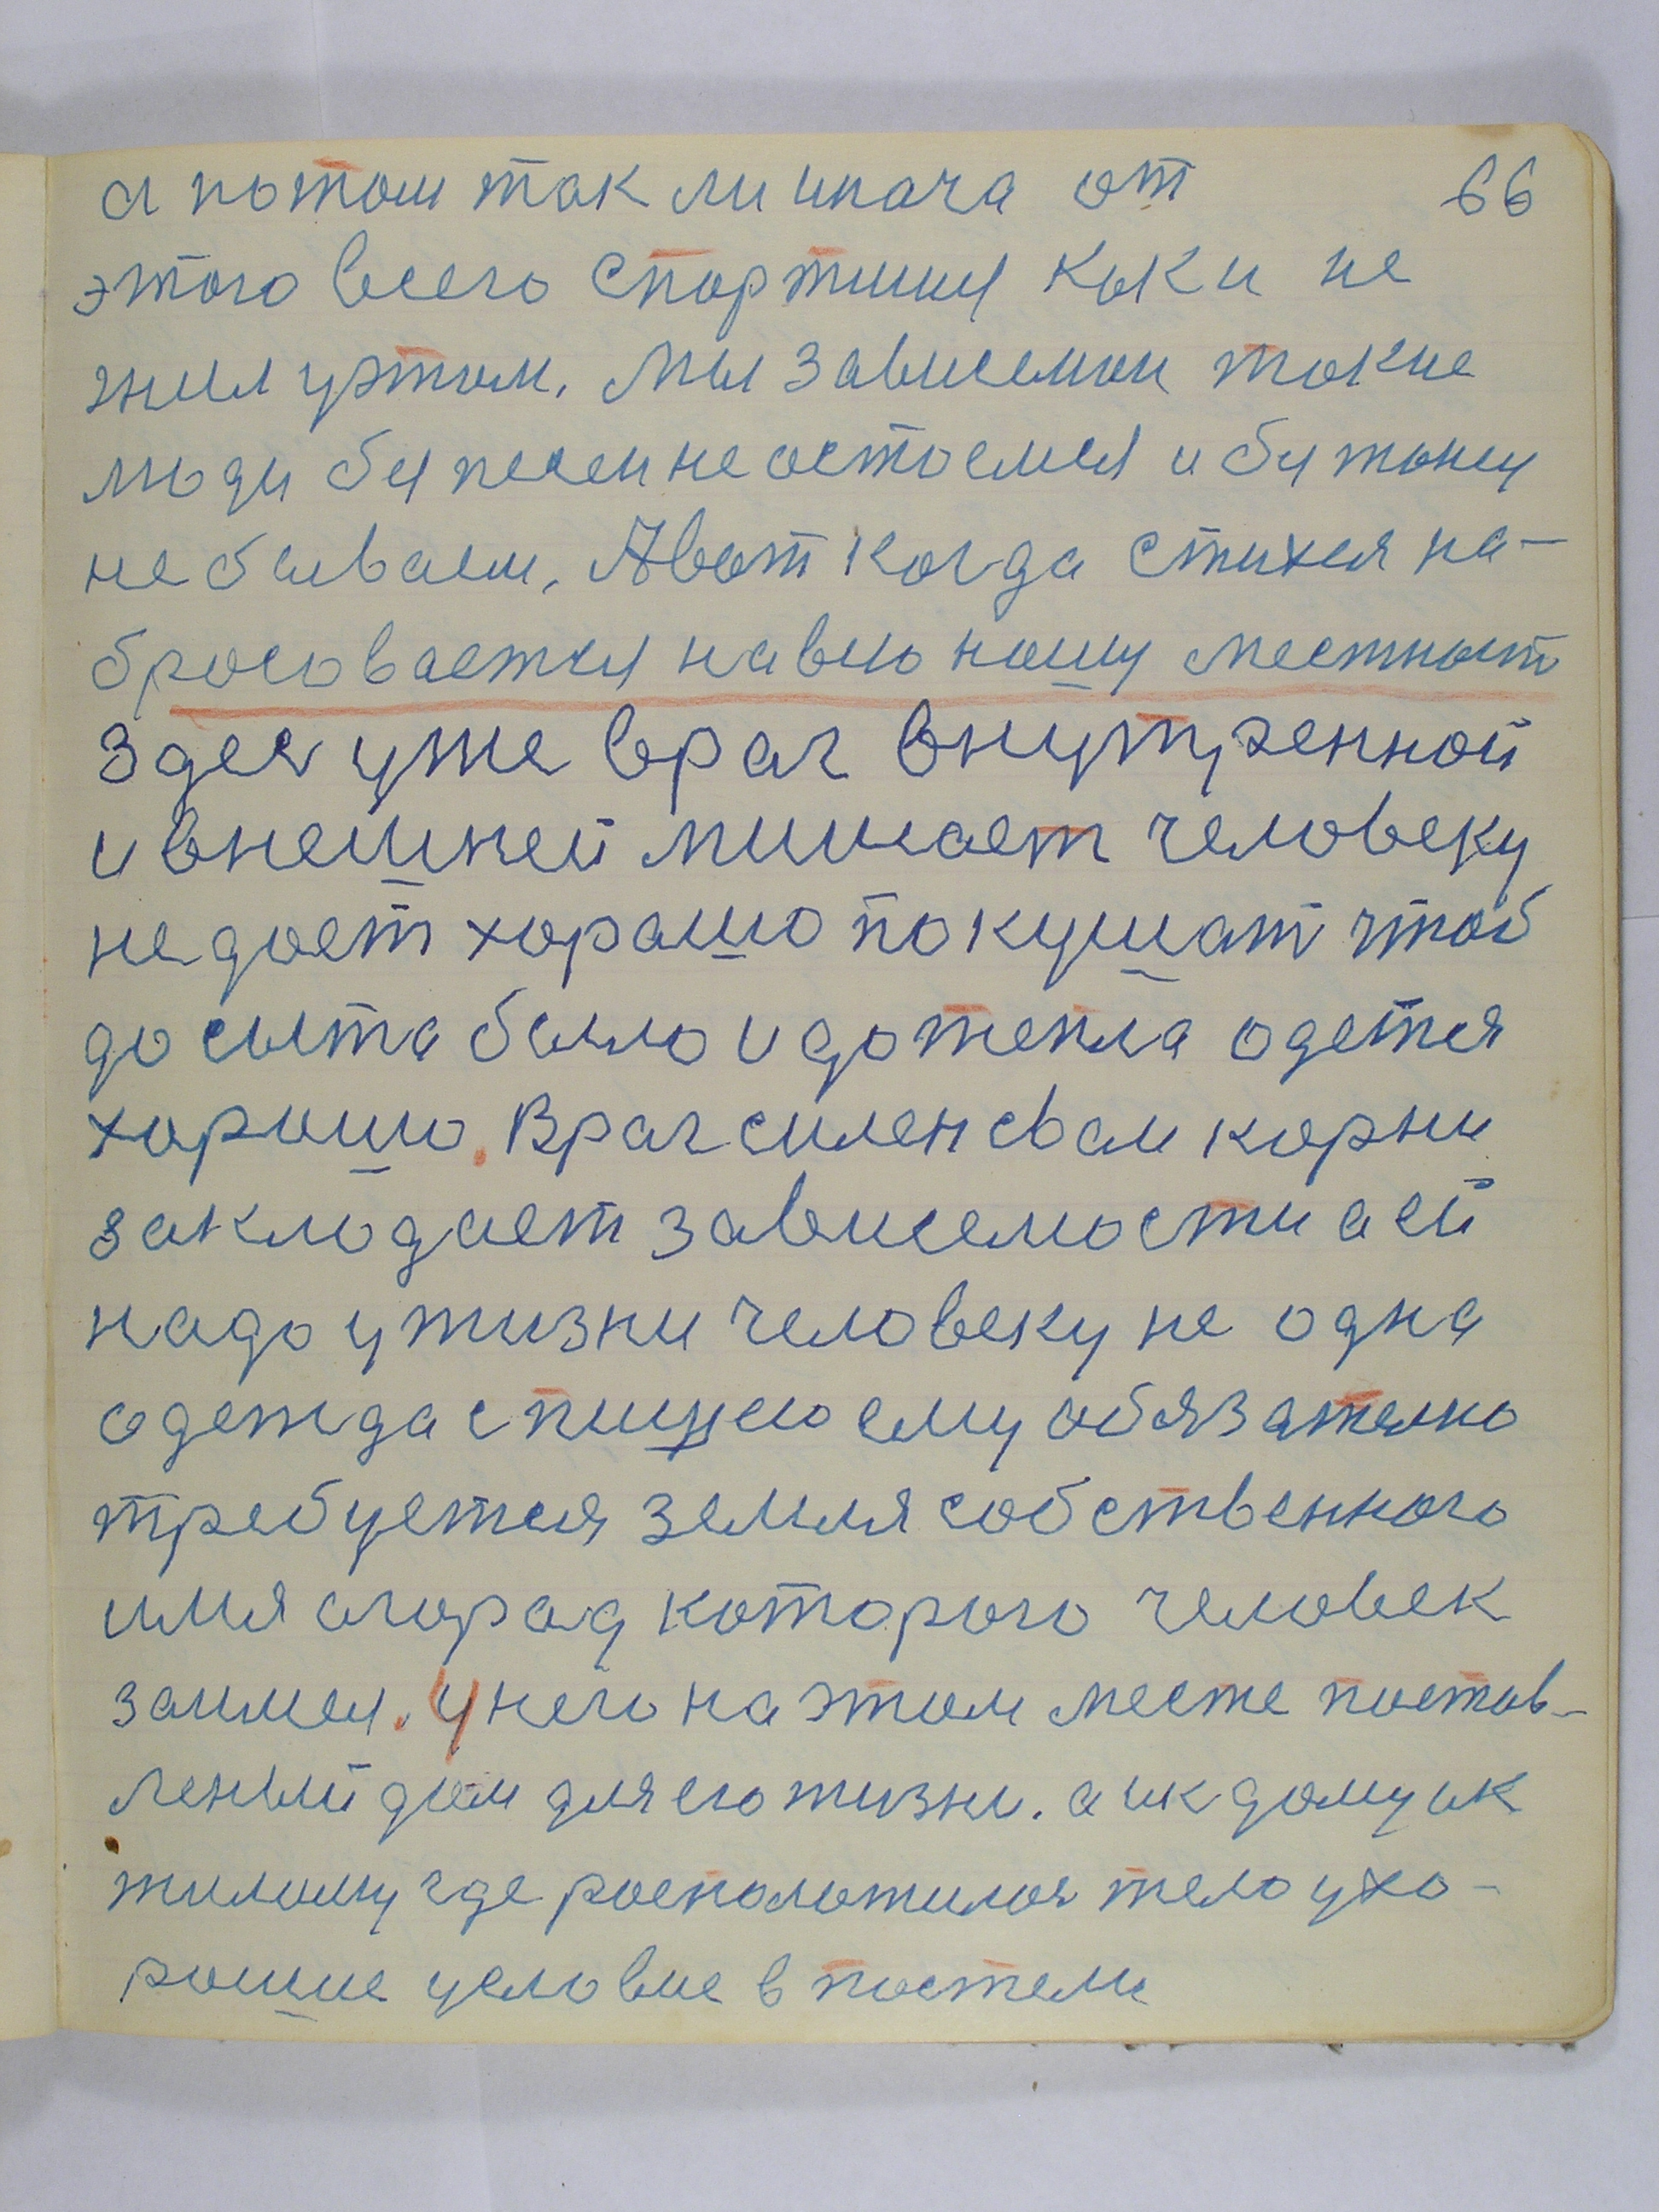 а потом так ли инача от 66
этого всего спортишся как и не
жил утом. Мы зависемаи такие
люди бяпесеи не остаемся и бу тоны
не бываем, А вот когда стихея на-
брасовается на всю нашу местност
здеся уже враг внутренной
и внешней мишает человеку
не дает хорашо покушат чтоб
до сыта было и до тепла одется
хорошо. Враг силен свои корни
закладает зависемости а ей
надо у жизни человеку не одна
одежда с пищею ему обязателно
требуется земля собственного
имя огорад которого человек
занимея. У него на этом месте постав-
леный дом для его жизни. а и к дому и к
жилому где расположилоя тело у хо-
рошие условие в постеле